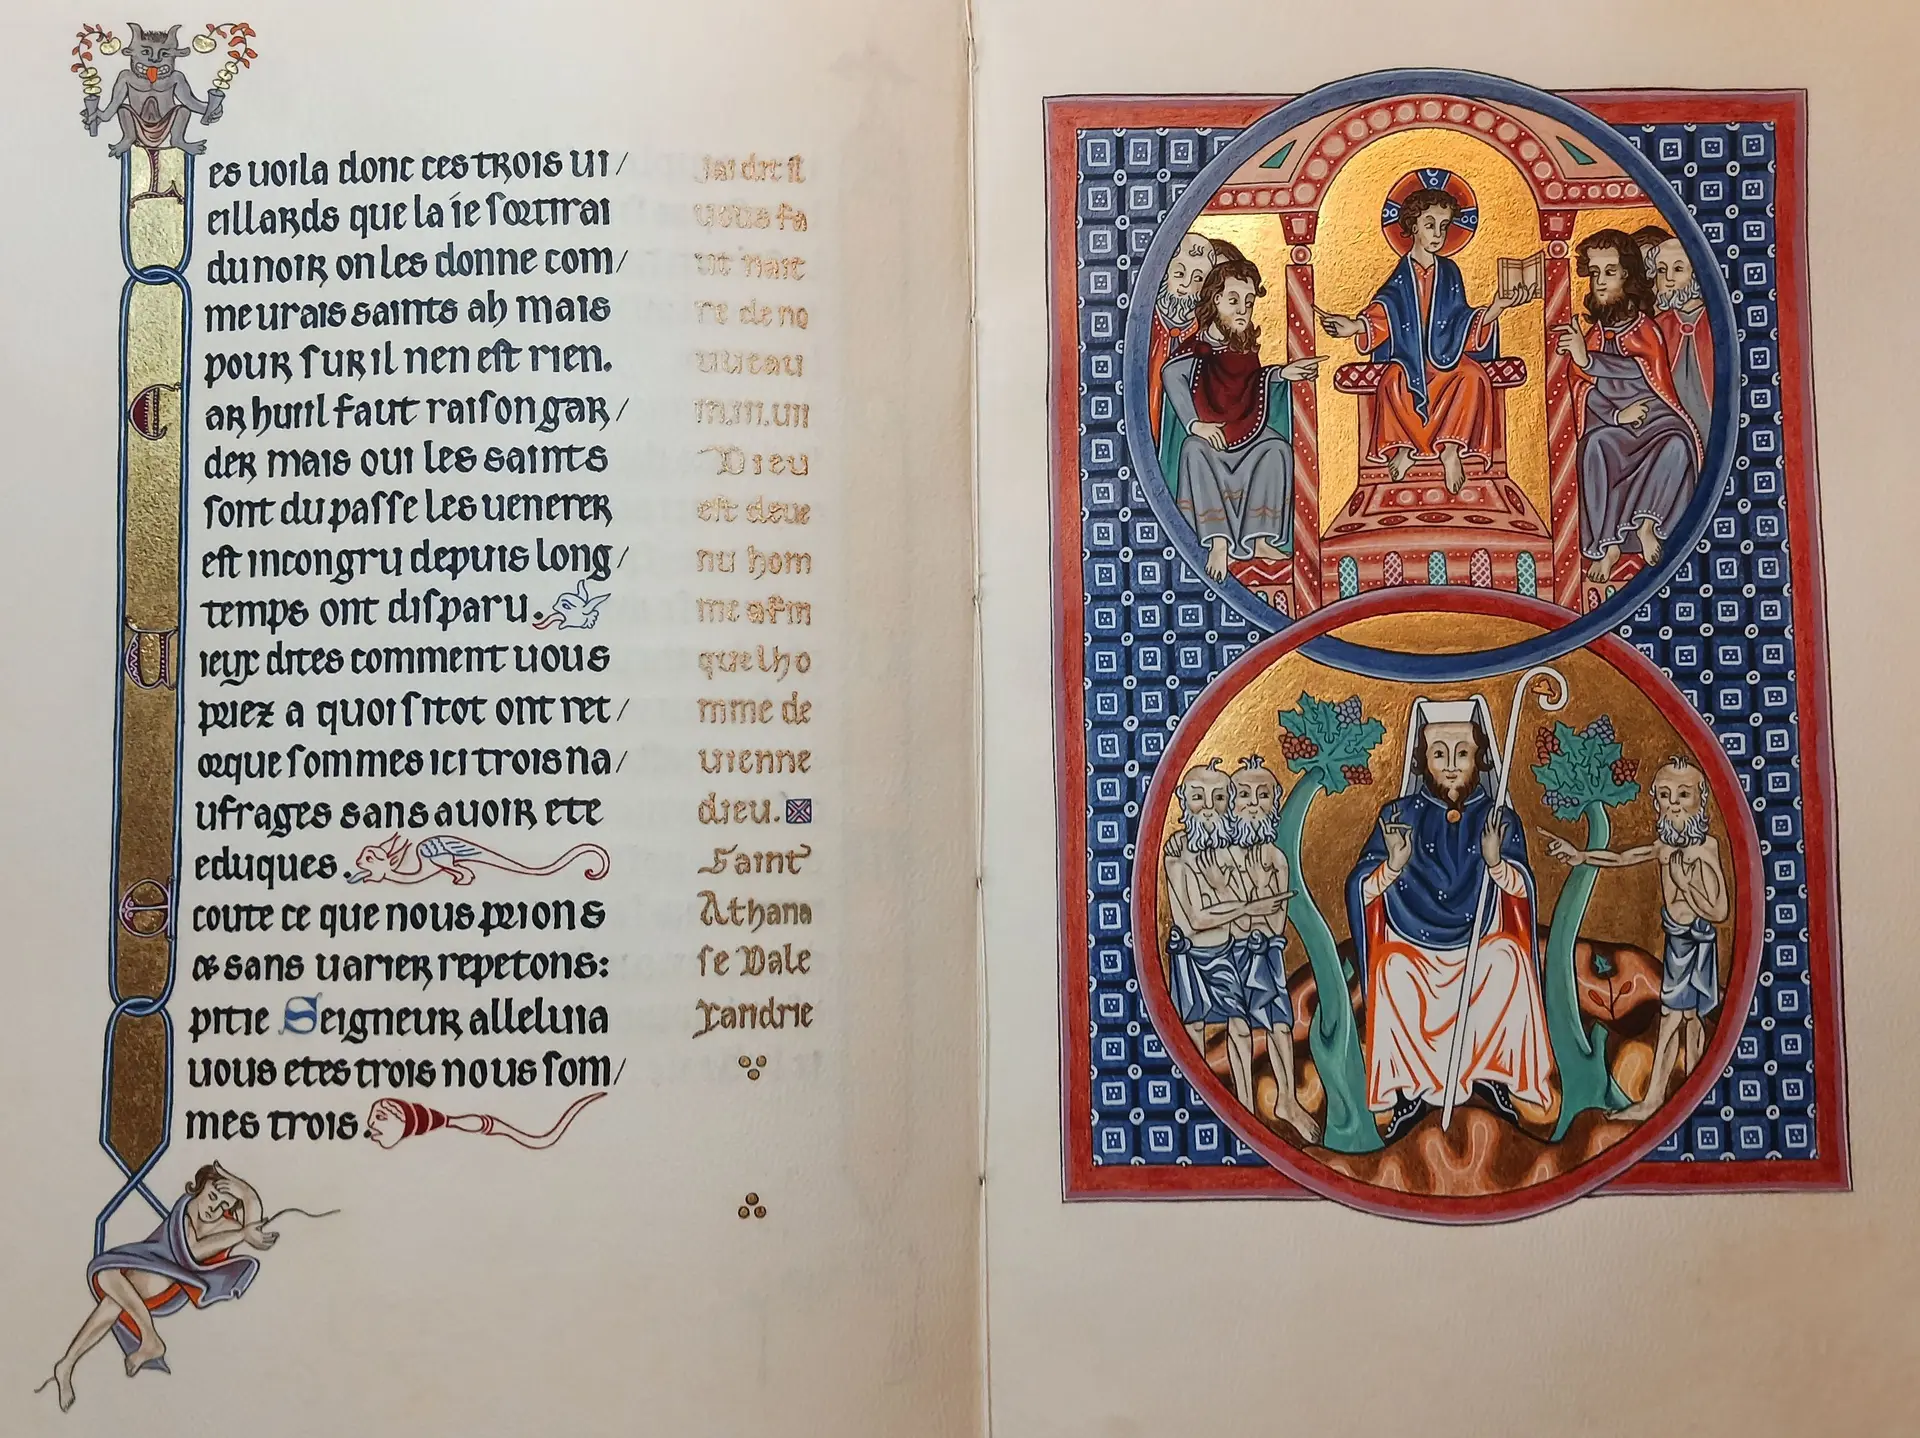 Les uoila donc ces trois ui/
eillards que la ie sortirai
du noir on les donne com/
me urais saints ah mais
pour sur il nen est rien.
Car hui il faut raison gar/
der mais oui les saints
sont du passe les uenerer
est incongru depuis long/
temps ont disparu.
Uieux dites comment uous
priez a quoi sitot ont ret/
orque sommes ici trois na/
ufrages sans auoir ete
eduques.
Ecoute ce que nous prions
& sans uarier repetons:
pitie Seigneur alleluia
uous etes trois nous som/
mes trois.
Jai dit il
uous fa
ut nait
re de no
uueau
iii.iii.uii
Dieu
est deue
nu hom
me afin
que lho
mme de
uienne
dieu.
Saint
Athana
se Dale
xandrie